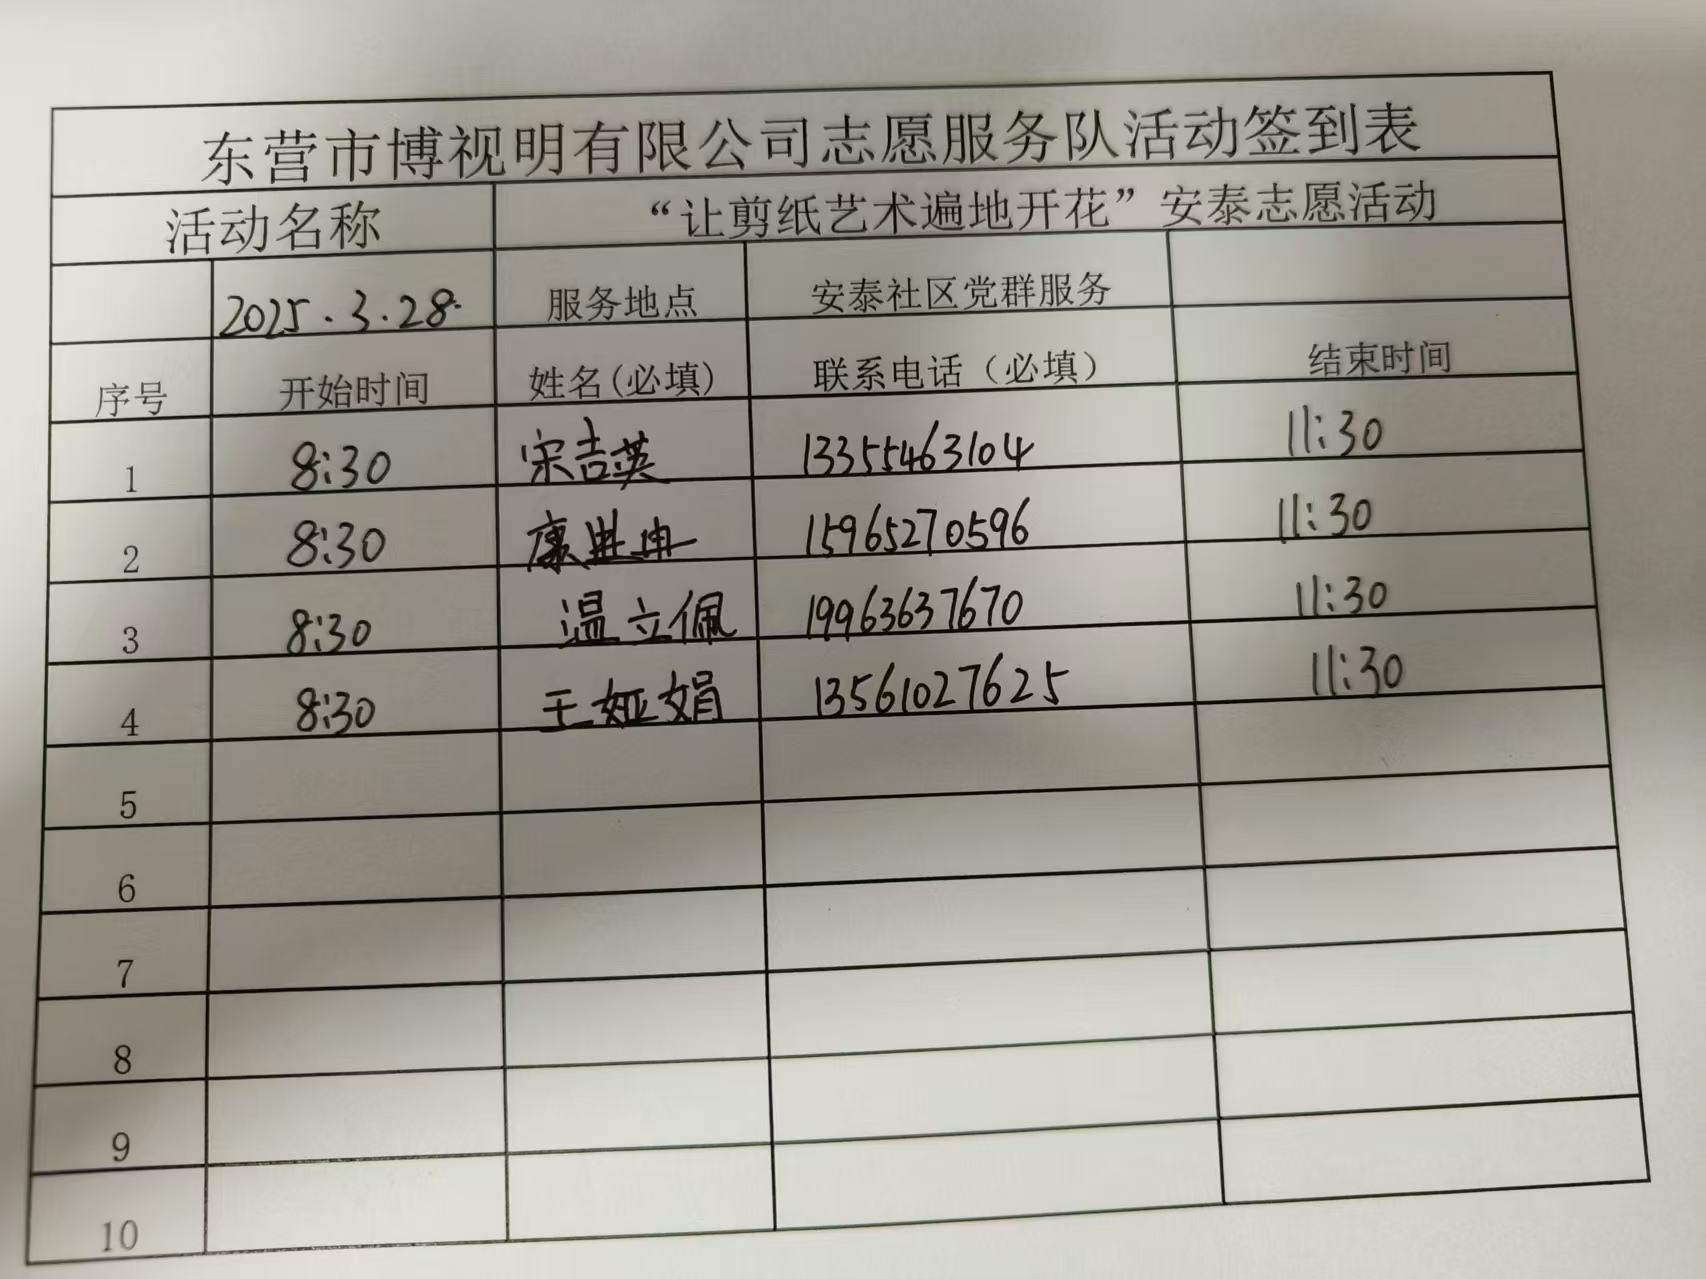 东营市博视明有限公司志愿服务队活动签到表
活动名称 “让剪纸艺术遍地开花”安泰志愿活动
2025.3.28. 服务地点 安泰社区党群服务
序号 开始时间 姓名(必填) 联系电话（必填） 结束时间
1 8:30 宋吉英 13355463104 11:30
2 8:30 康 15965270596 11:30
3 8:30 温立佩 19963637670 11:30
4 8:30 王娅娟 13561027625 11:30
5
6
7
8
9
10